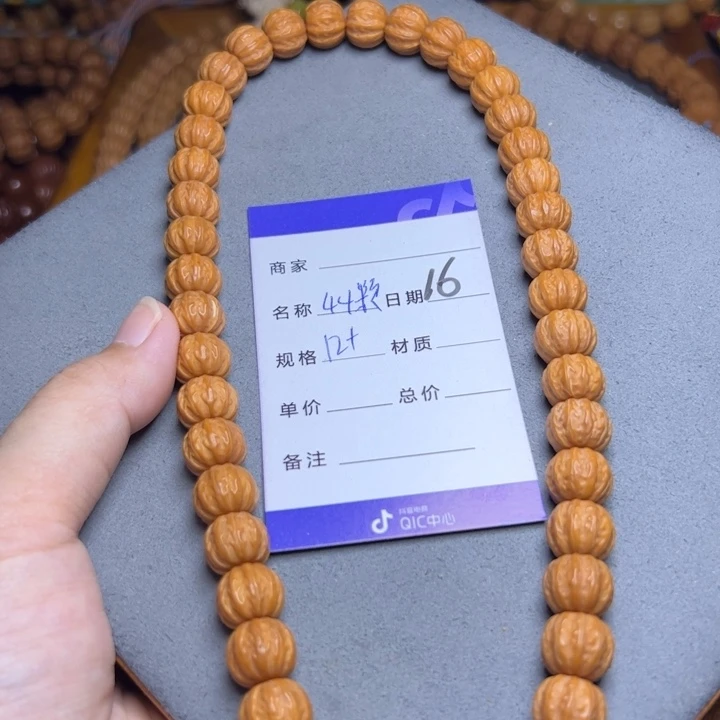 商家
名称 44颗 日期 16
规格 12+ 材质
单价 总价
备注
抖音电商
QIC中心